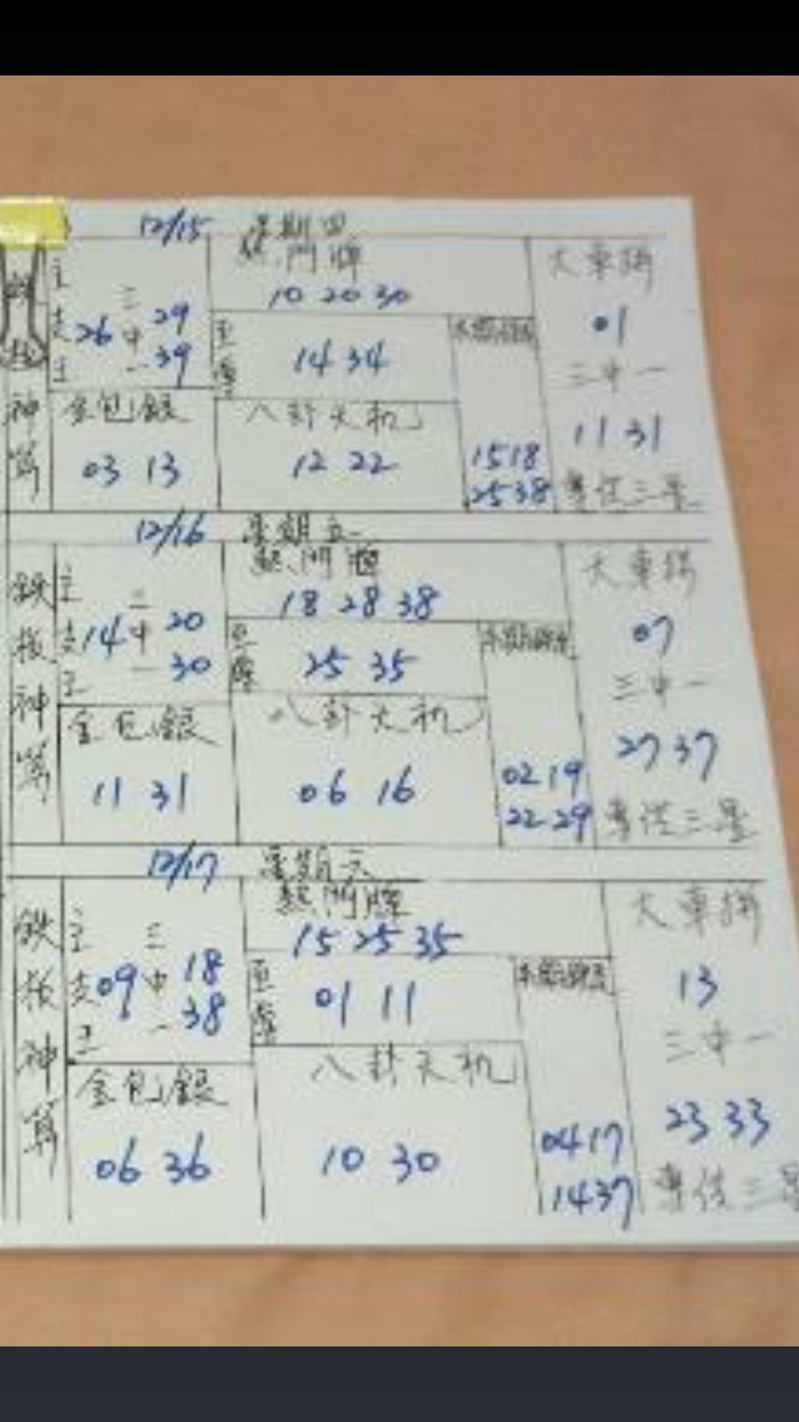 12/15 星期四
主支 26 三中一 29 39
熱門牌
10 20 30
14 34
金包銀
03 13
八卦天机
12 22
15 18
25 38
大車拼
01
三中一
11 31
專供三星
神算
12/16 星期五
鉄板神算
主支 14 三中一 20 30
熱門牌
18 28 38
25 35
金包銀
11 31
八卦天机
06 16
02 19
22 29
大車拼
07
三中一
27 37
專供三星
12/17 星期六
鉄板神算
主支 09 三中一 18 38
熱門牌
15 25 35
01 11
金包銀
06 36
八卦天机
10 30
04 17
14 37
大車拼
13
三中一
23 33
專供三星